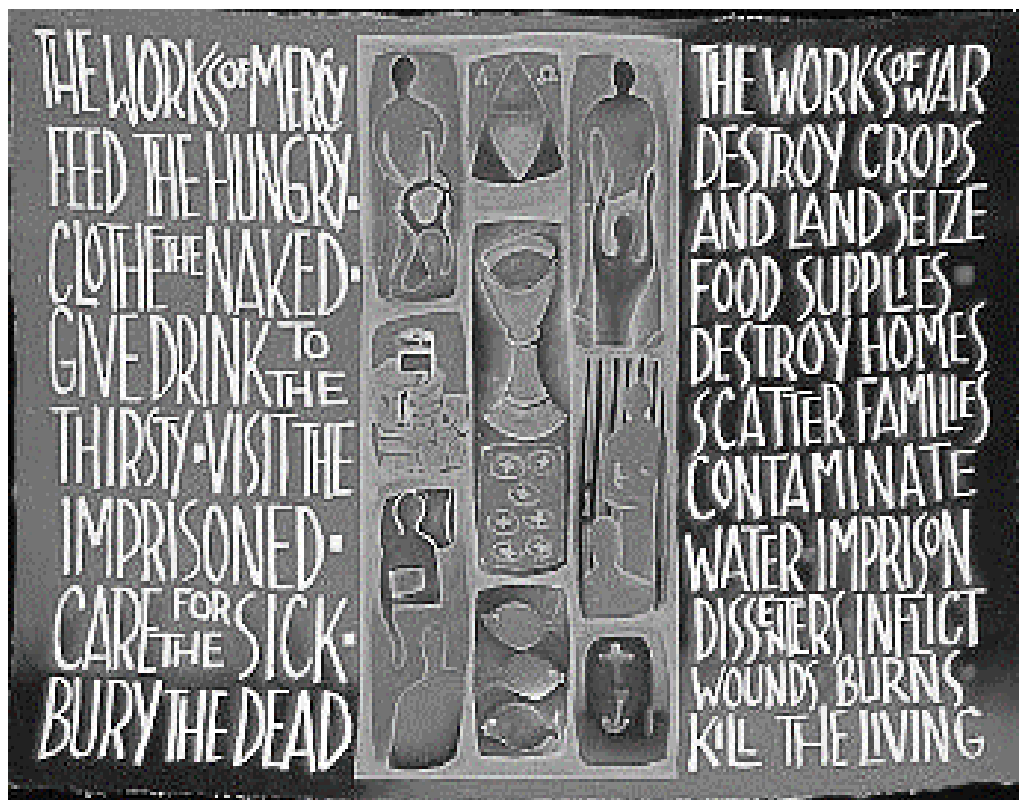 THE WORKS OF MERCY
FEED THE HUNGRY·
CLOTHE THE NAKED·
GIVE DRINK TO THE
THIRSTY·VISIT THE
IMPRISONED·
CARE FOR THE SICK·
BURY THE DEAD
Α Ω
THE WORKS OF WAR
DESTROY CROPS
AND LAND·SEIZE
FOOD SUPPLIES·
DESTROY HOMES
SCATTER FAMILIES
CONTAMINATE
WATER·IMPRISON
DISSENTERS INFLICT
WOUNDS, BURNS·
KILL THE LIVING